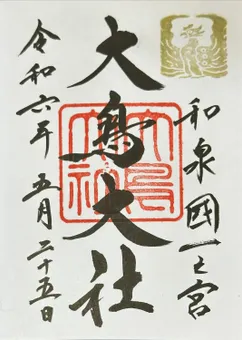 和泉國一之宮
大鳥大社
大鳥大社
令和六年 五月二十五日